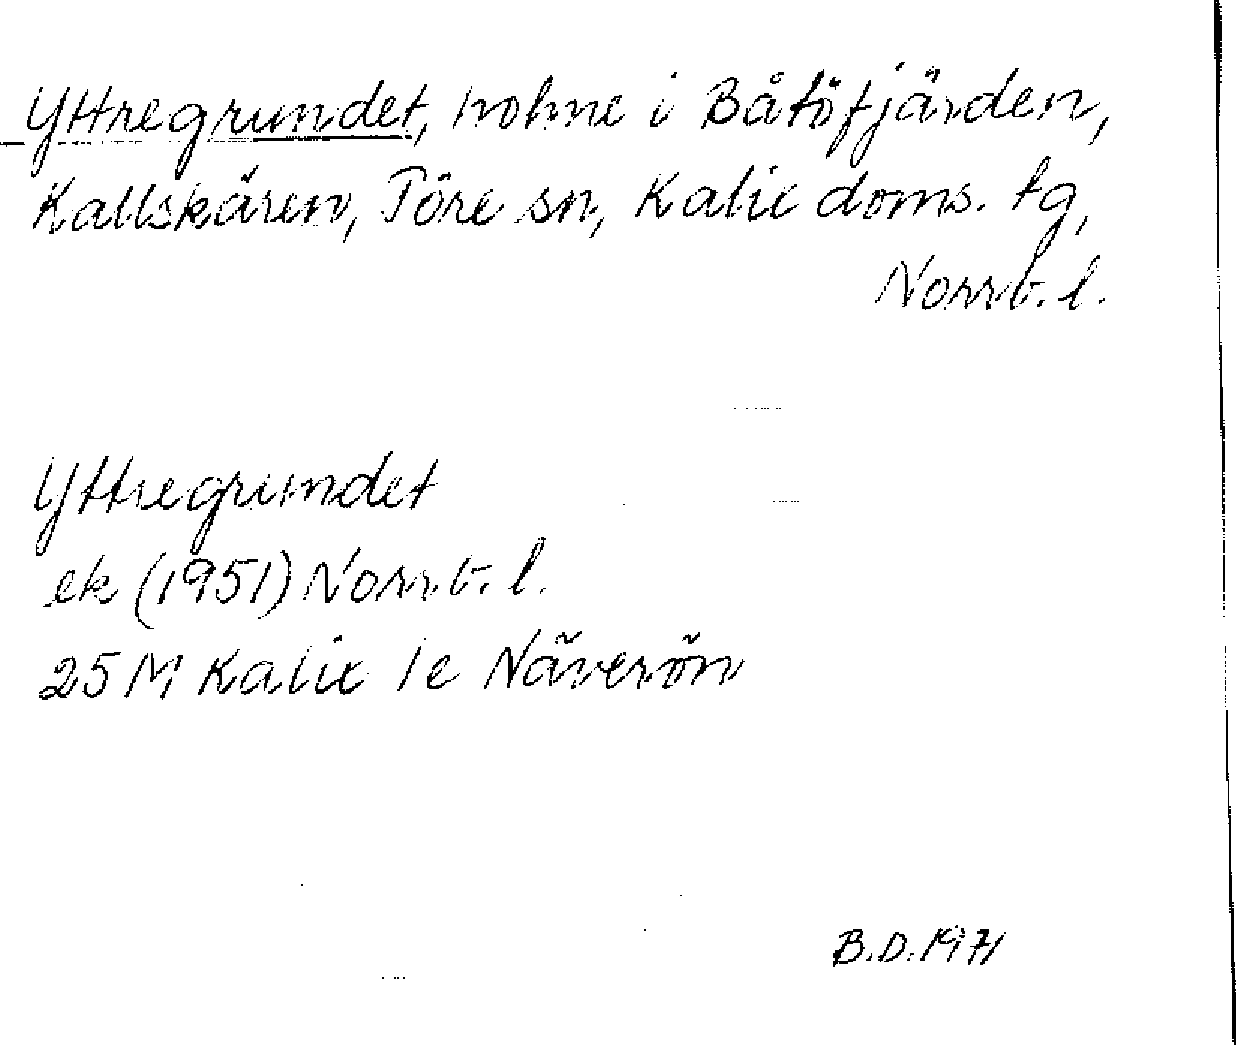 Yttregrundet, holme i Båtöfjärden,
Kallskären, Töre sn, Kalix doms. tg,
Norrb. l.
Yttregrundet
ek (1951) Norrb. l.
25 M Kalix 1e Näverön
B.D. 1971